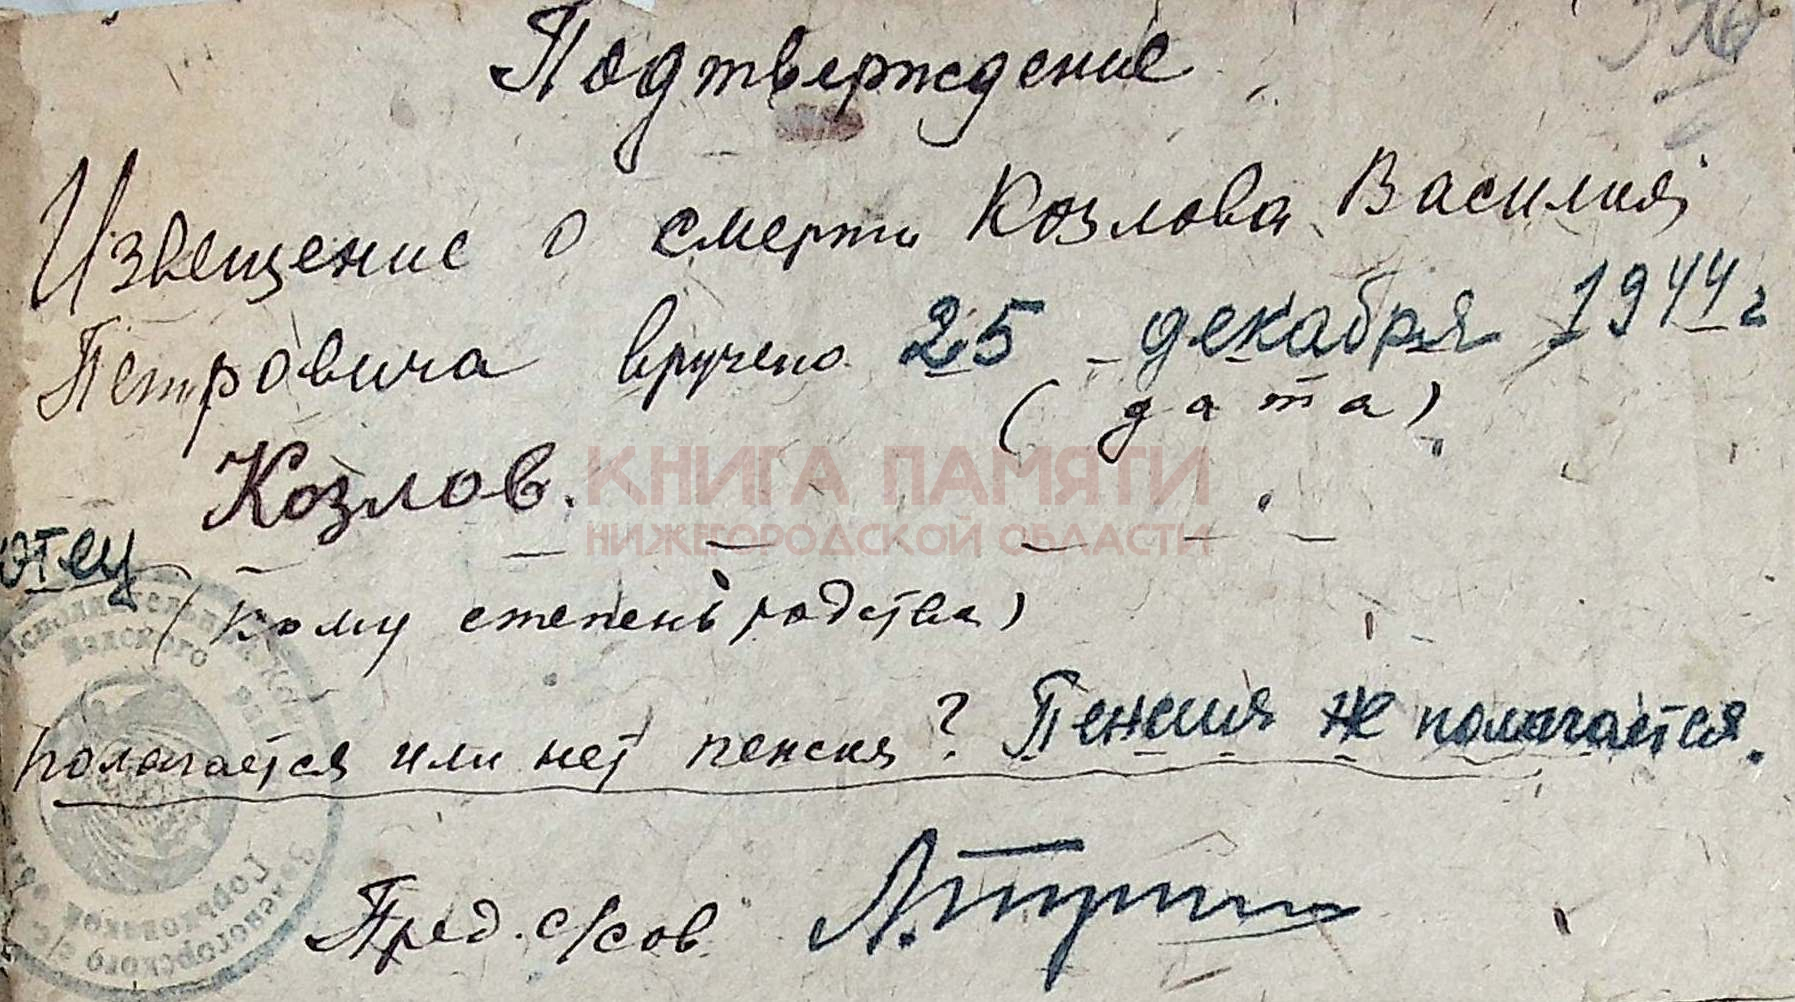 Подтверждение
Извещение о смерти Козлова Василия
Петровича вручено 25 декабря 1944 г
(дата).
Козлов.
КНИГА ПАМЯТИ
НИЖЕГОРОДСКОЙ ОБЛАСТИ
отец
(кому степень родства)
полагается или нет пенсия? Пенсия не полагается.
Пред. с/сов
Горьковской